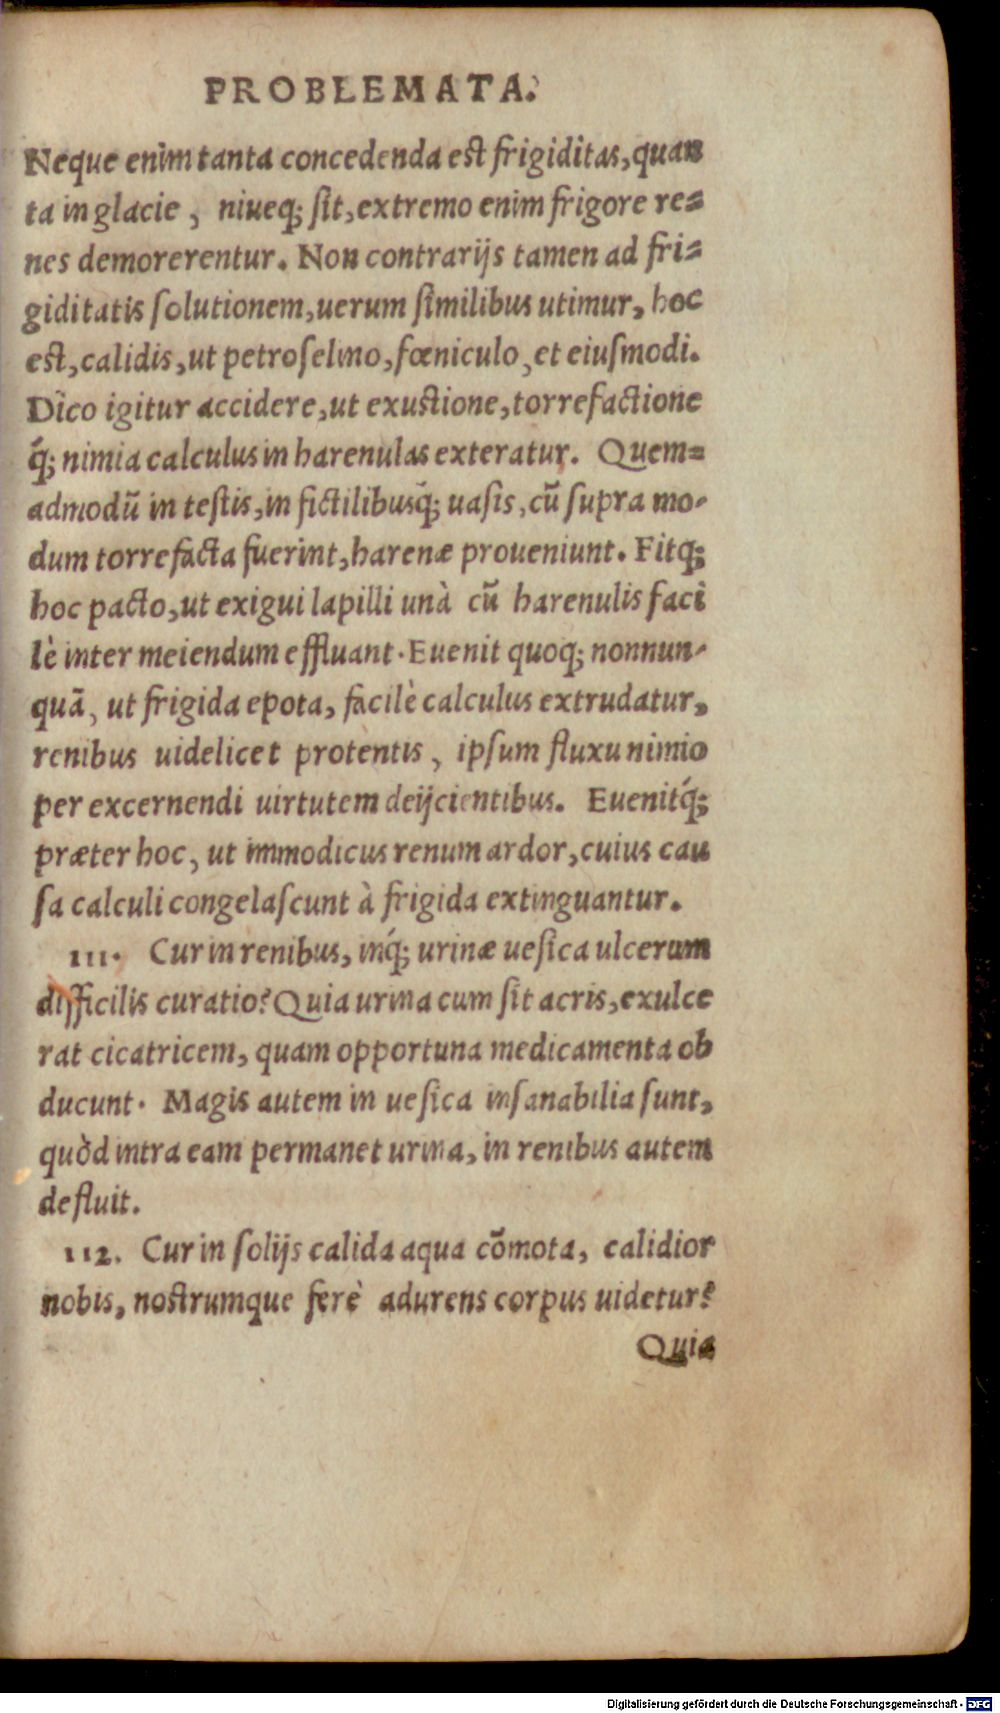 PROBLEMATA.
Neque enim tanta concedenda est frigiditas, quan
ta in glacie, niueq; sit, extremo enim frigore re=
nes demorerentur. Non contrarijs tamen ad fri=
giditatis solutionem, uerum similibus utimur, hoc
est, calidis, ut petroselino, fœniculo, et eiusmodi.
Dico igitur accidere, ut exustione, torrefactione
q́; nimia calculus in harenulas exteratur. Quem=
admodū in testis, in fictilibusq́; uasis, cū supra mo-
dum torrefacta fuerint, harenæ proueniunt. Fitq́;
hoc pacto, ut exigui lapilli unà cū harenulis faci
lè inter meiendum effluant. Euenit quoq; nonnun-
quā, ut frigida epota, facilè calculus extrudatur,
renibus uidelicet protentis, ipsum fluxu nimio
per excernendi uirtutem deijcientibus. Euenitq́;
præter hoc, ut immodicus renum ardor, cuius cau
sa calculi congelascunt à frigida extinguantur.
111. Cur in renibus, inq́; urinæ uesica ulcerum
difficilis curatio? Quia urina cum sit acris, exulce
rat cicatricem, quam opportuna medicamenta ob
ducunt. Magis autem in uesica insanabilia sunt,
quòd intra eam permanet urina, in renibus autem
defluit.
112. Cur in solijs calida aqua cōmota, calidior
nobis, nostrumque ferè adurens corpus uidetur?
Quia
Digitalisierung gefördert durch die Deutsche Forschungsgemeinschaft - DFG